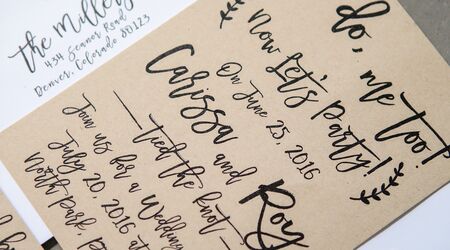 The Millers
434 Seanor Road
Denver, Colorado 80123
do, me too!
Now Let's Party!
On June 25, 2016
Carissa and Roy
tied the knot
Join us for a Wedding
July 20, 2016 at
North Park